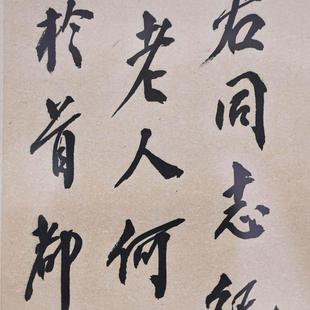 右同志
老人何
於首都